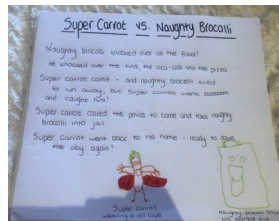 Super Carrot vs. Naughty Brocolli
Naughty brocolli knocked over all the food!
He knocked over the the coca-cola and the pizza.
Super carrot came - and naughty brocolli tried
to run away, but Super carrot went zooooom
and caught him!
Super carrot called the police to come and take naughty
brocolli into jail.
Super Carrot went back to his home - ready to save
the day again!
Super carrot
wearing a red cape
Naughty brocolli